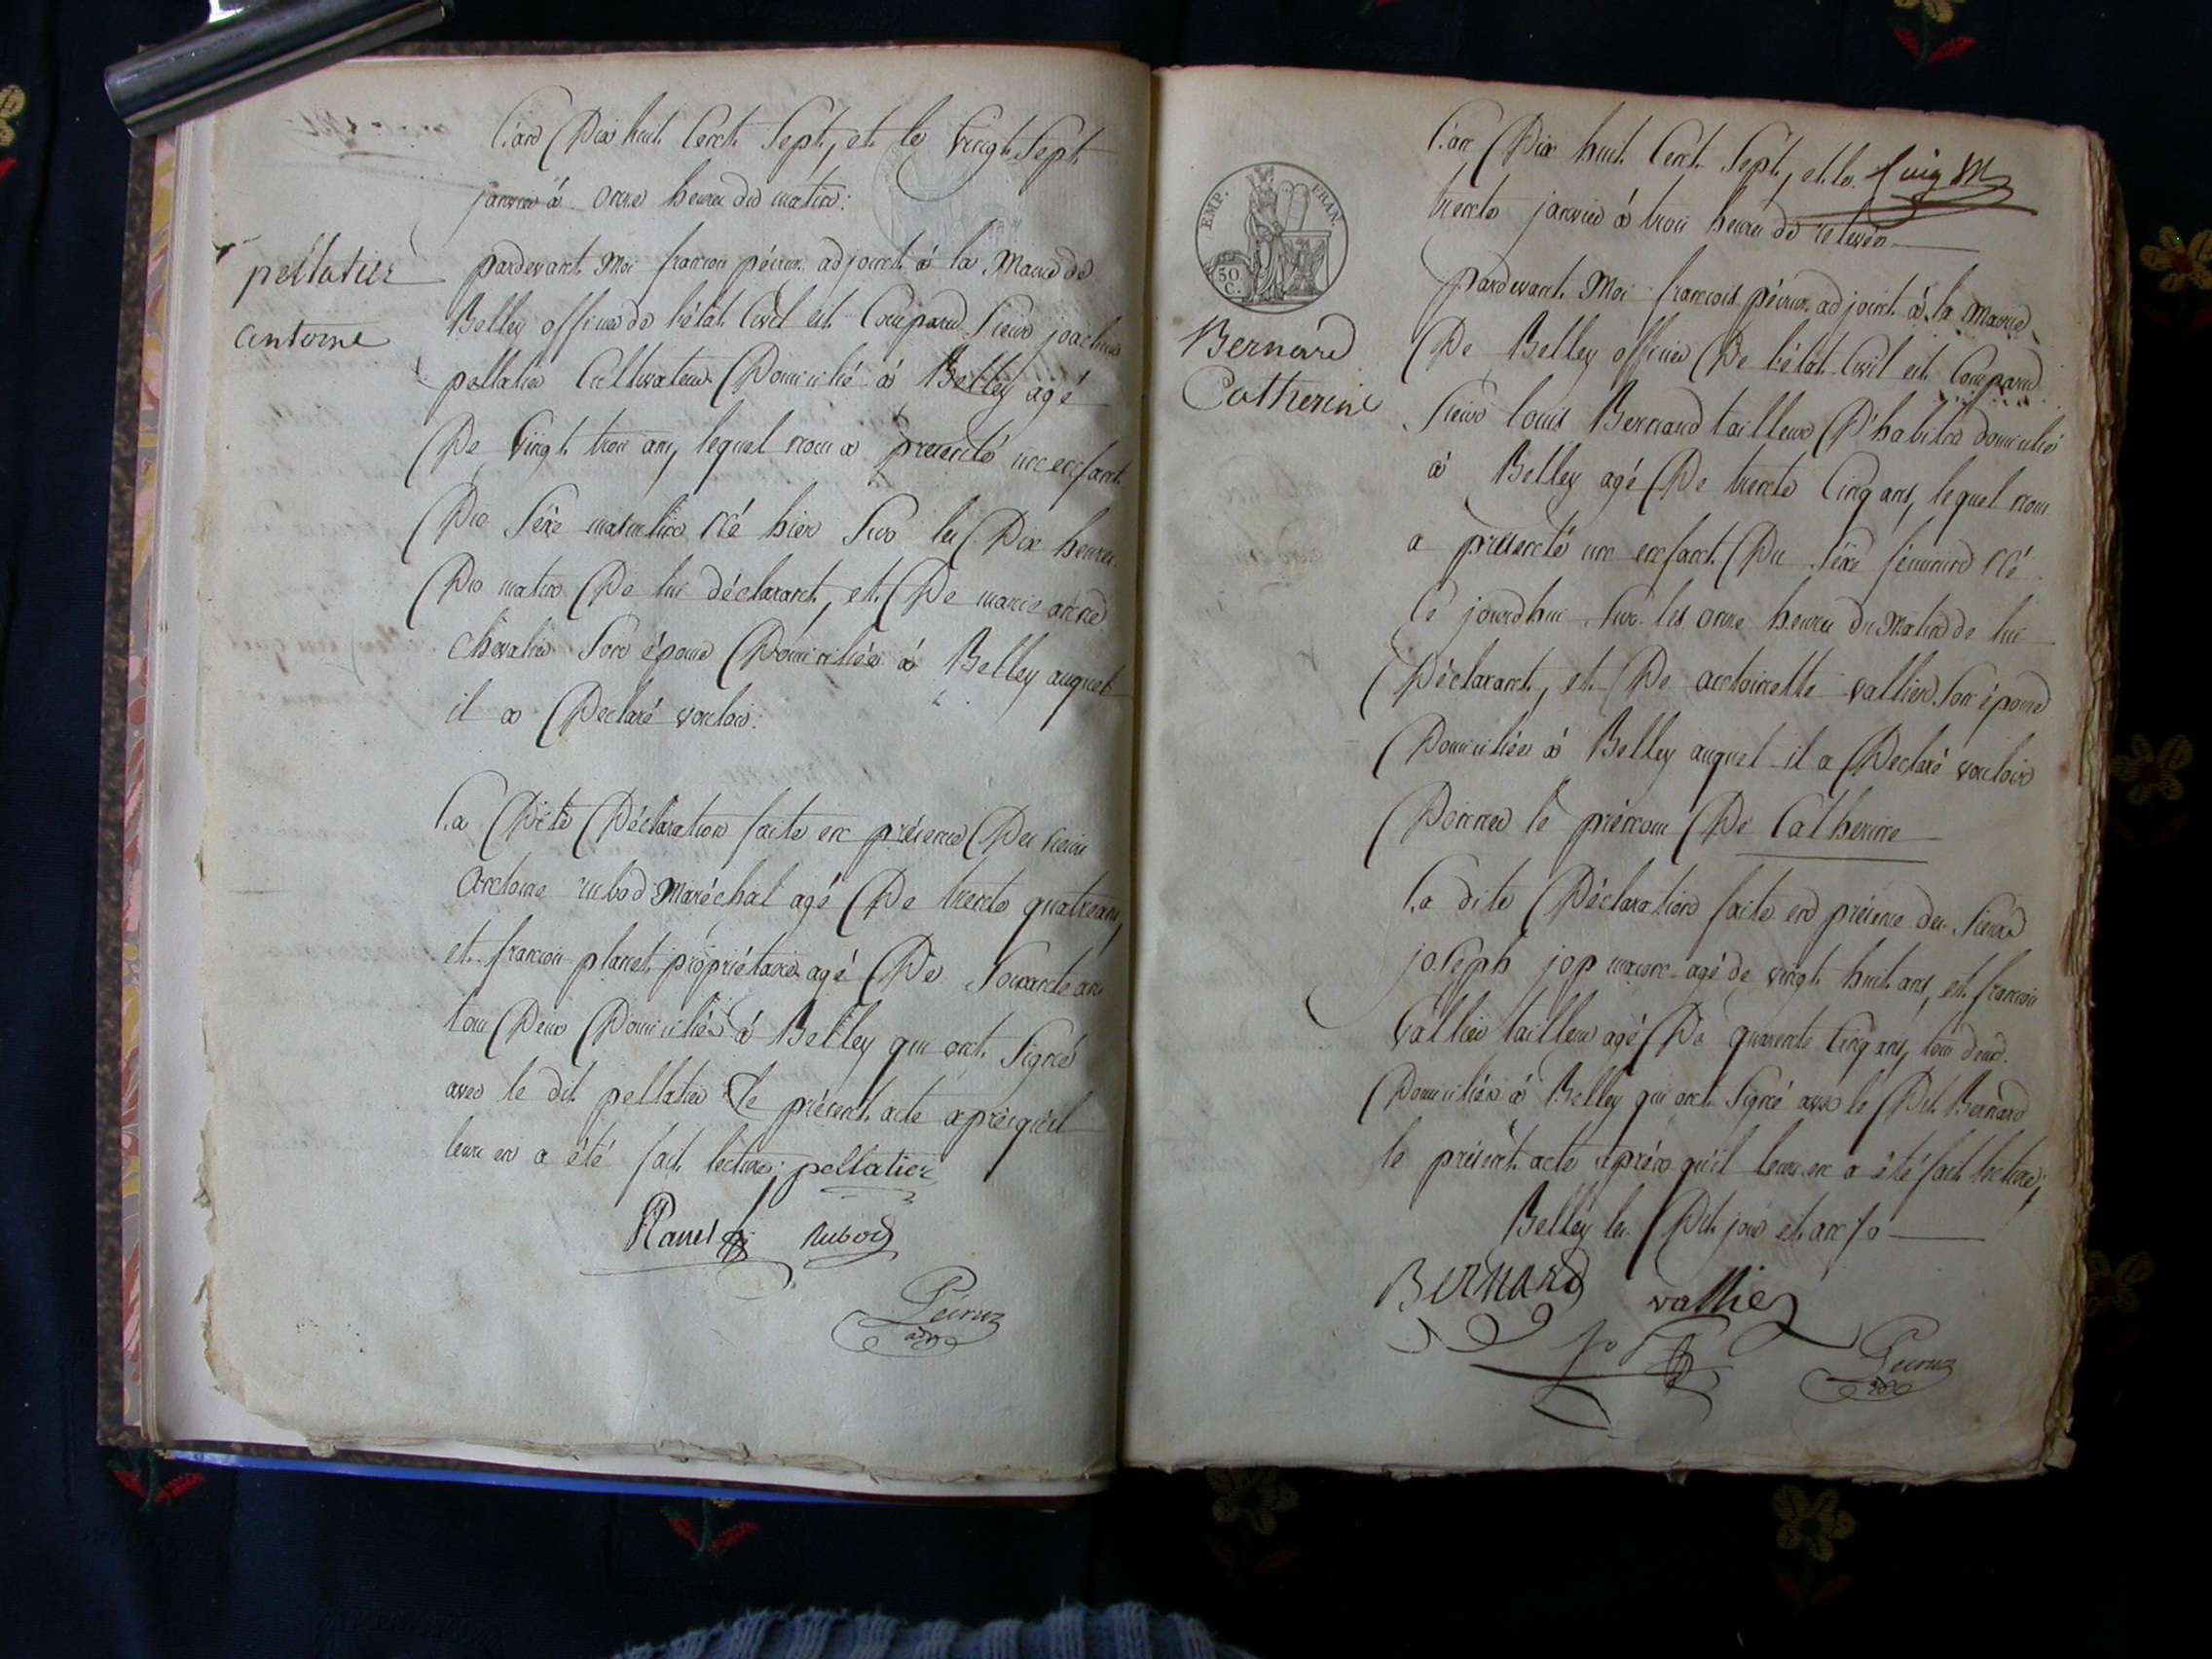 L'an Dix huit Cent Sept, et le Vingt Sept
janvier à onze heures du matin:
pellatier
antoine
pardevant Moi francois pécruz adjoint à la Mairie de
Belley officier de l'état Civil est Comparu Sieur joachim
pellatier Cultivateur Domicilié à Belley agé
De Vingt trois ans, lequel nous a presenté un enfant
Du Séxe masculin Né hier Sur les Dix heures
Du matin De lui déclarant, et De marie anne
chevalier Son épouse Domiciliés à Belley auquel
il a Declaré vouloir:
La Dite Déclaration faite en présence Des sieurs
Antoine rubod Maréchal agé De trente quatre ans,
et francois planet propriétaire agé De Soixante ans
tous Deux Domiciliés à Belley qui ont Signés
avec le dit pellatier le présent acte après qu'il
leurs en a été fait lecture; pellatier
Planet Rubod
Pécruz
adj
EMP. FRAN.
50 C.
L'an Dix huit Cent Sept, et le
trente janvier à trois heures de relevée
Bernard
Catherine
pardevant Moi francois pécruz adjoint à la Mairie
De Belley officier De l'état Civil est Comparu
Sieur louis Bernard tailleur D'habits domicilié
à Belley agé De trente Cinq ans, lequel nous
a présenté un enfant Du Séxe féminin Né
Ce jourdhui Sur les onze heures du Matin de lui
Déclarant, et De antoinette vallier Son épouse
Domiciliés à Belley auquel il a Declaré vouloir
Donner le prénom De Catherine
La dite Déclaration faite en présence des Sieurs
joseph jop macon agé de vingt huit ans, et francois
Vallier tailleur agé De quarente Cinq ans, tous deux
Domiciliés à Belley qui ont Signé avec le Dit Bernard
le présent acte après qu'il leurs en a été fait lecture;
Belley les Dit jour et an
BERNARD vallier
jop
Pécruz
adj